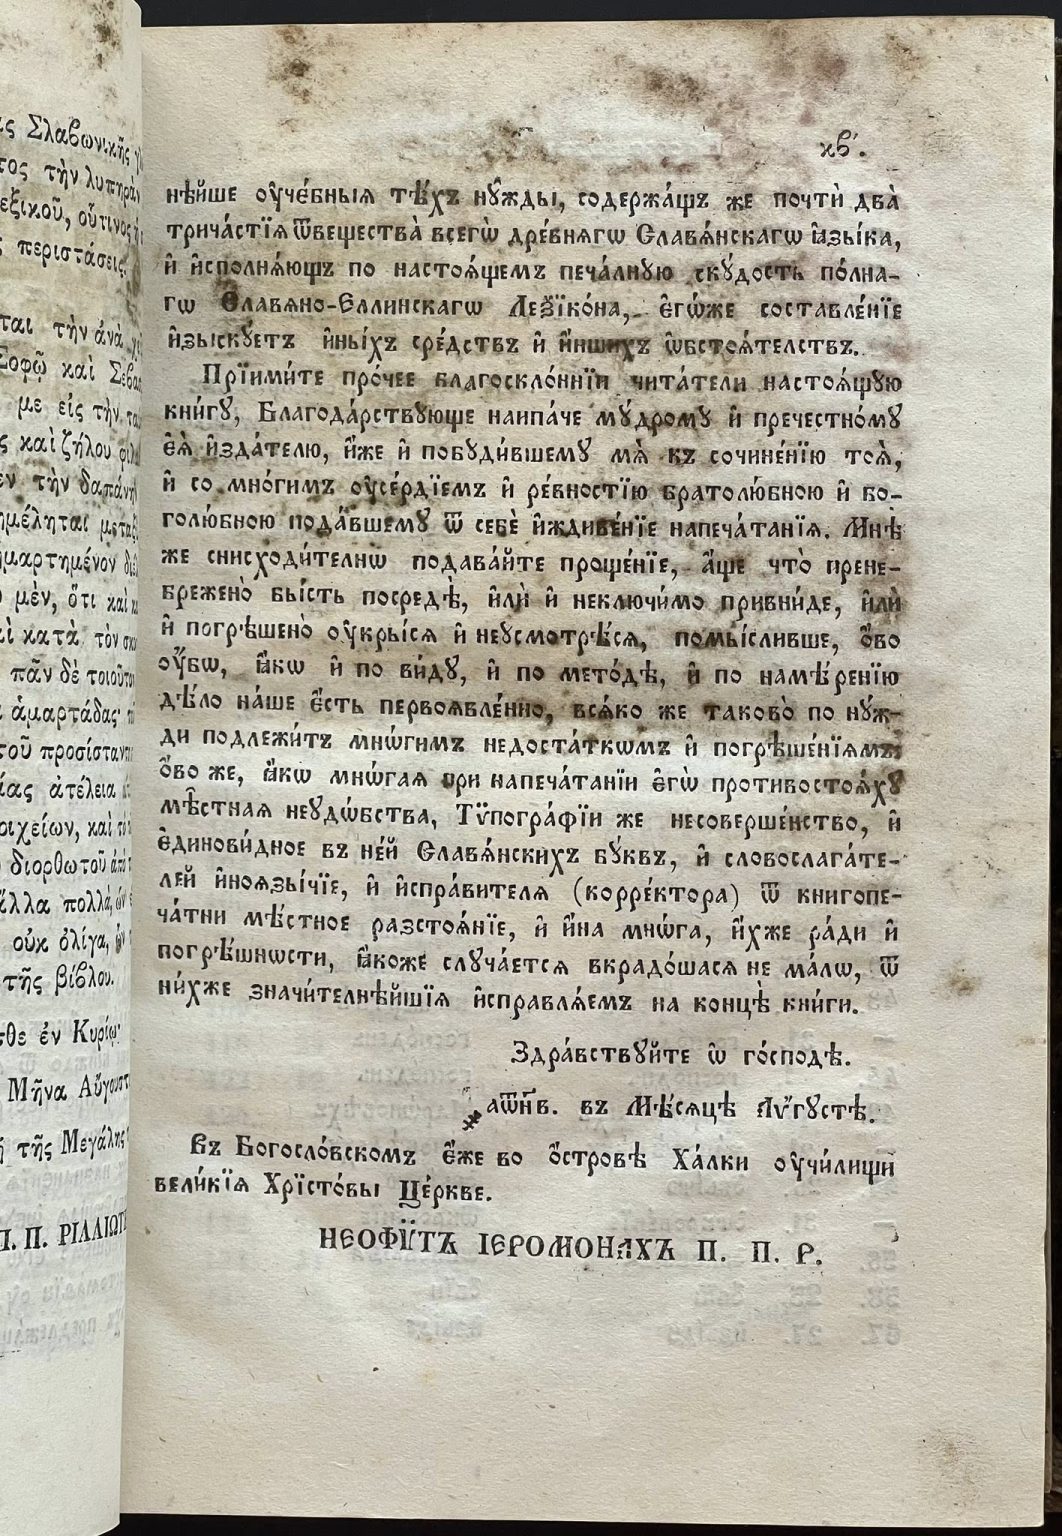 ας Σλαβωνικῆς
τος τὴν λυπηρὰν
εξικοῦ, οὗτινος
ς περιστάσεις.
ται τὴν ἀνὰ
Σοφῷ καὶ Σεβασ
με εἰς τὴν
ς καὶ ζήλου
εν τὴν δαπάνη
ημέληται μεταξ
ημαρτημένον
μὲν, ὅτι καὶ
αὶ κατὰ τὸν
πᾶν δὲ τοιοῦτον
ἁμαρτάδας
τοῦ προσίσταν
ίας ἀτέλεια
οιχείων, καὶ
διορθωτοῦ ἀπὸ
ἄλλα πολλά, ὧν
οὐκ ὀλίγα,
τῆς βίβλου.
σθε ἐν Κυρίῳ·
Μῆνα Αὔγουστ
τῆς Μεγάλης
Π. Π. ΡΙΛΛΙΩΤ
κβ´.
нѣйше оучє́бныѧ тѣ́хъ нꙋ́жды, содержа́щъ же почтѝ два̀
трича́стїѧ ѿвещества̀ всегѡ̀ дре́внѧгѡ Славѧ́нскагѡ ꙗ҆зы́ка,
и҆ и҆сполнѧ́ющъ по настоѧ́щемъ печа́лнꙋю скꙋ́дость по́лна-
гѡ Славѧно-Еллинскагѡ Леѯїко́на, є҆гѡ́же составле́нїе
и҆зыскꙋетъ и҆ны́хъ сре́дствъ и҆ и҆́ншихъ ѡ҆бстоѧ́телствъ.
Прїими́те про́чее благосклѡ́ннїи чита́тели настоѧ́щꙋю
кни́гꙋ, Благода́рствꙋюще наипа́че мꙋ́дромꙋ и҆ пречестно́мꙋ
є҆ѧ̀ и҆зда́телю, и҆́же и҆ побꙋди́вшемꙋ мѧ̀ къ сочине́нїю тоѧ̀,
и҆ со мно́гимъ оусе́рдїемъ и҆ ре́вностїю братолю́бною и҆ бо-
голю́бною пода́вшемꙋ ѿ себѐ и҆ждиве́нїе напеча́танїѧ. Мнѣ
же снисходи́телнѡ подава́йте проще́нїе, а҆́ще что̀ прене-
брежено̀ бы́сть посредѣ̀, и҆лѝ и҆ неключи́мо привни́де, и҆лѝ
и҆ погрѣшено̀ оукры́сѧ и҆ неꙋсмотрѣ́сѧ, помы́сливше, ѻ҆́во
оу҆́бѡ, ꙗ҆́кѡ и҆ по ви́дꙋ, и҆ по мето́дѣ, и҆ по намѣ́ренїю
дѣ́ло на́ше є҆́сть первоѧвле́нно, всѧ́ко же таково̀ по нꙋж-
ди подлежи́тъ мнѡ́гимъ недоста́ткѡмъ и҆ погрѣше́нїѧмъ:
ѻ҆́во же, ꙗ҆́кѡ мнѡ́гаѧ при напеча́танїи є҆гѡ̀ противостоѧ́хꙋ
мѣ̑стнаѧ неꙋдѡ́бства, Тѷпогра́фїи же несоверше́нство, и҆
є҆динови́дное въ не́й Славѧ́нскихъ бꙋ́квъ, и҆ словослага́те-
ле́й и҆ноѧзы́чїе, и҆ и҆спра́вителѧ (корре́ктора) ѿ книгопе-
ча́тни мѣ́стное разстоѧ́нїе, и҆ и҆́на мнѡ́га, и҆́хже ра́ди и҆
погрѣ́шности, ꙗ҆́коже слꙋча́етсѧ вкрадо́шасѧ не ма́лѡ, ѿ
ни́хже значи́телнѣйшїѧ и҆справлѧ́емъ на концѣ̀ кни́ги.
Здра́вствꙋйте ѡ҆ го́сподѣ.
аѿнв. въ Мѣ́сѧце Аѵ҆́гꙋстѣ.
Въ Богосло́вскомъ є҆́же во ѻ҆́стровѣ Ха́лки оучи́лищи
вели́кїѧ Хрїсто́вы Це́ркве.
НЕОФѴТЪ ІЕРОМОНАХЪ П. П. Р.